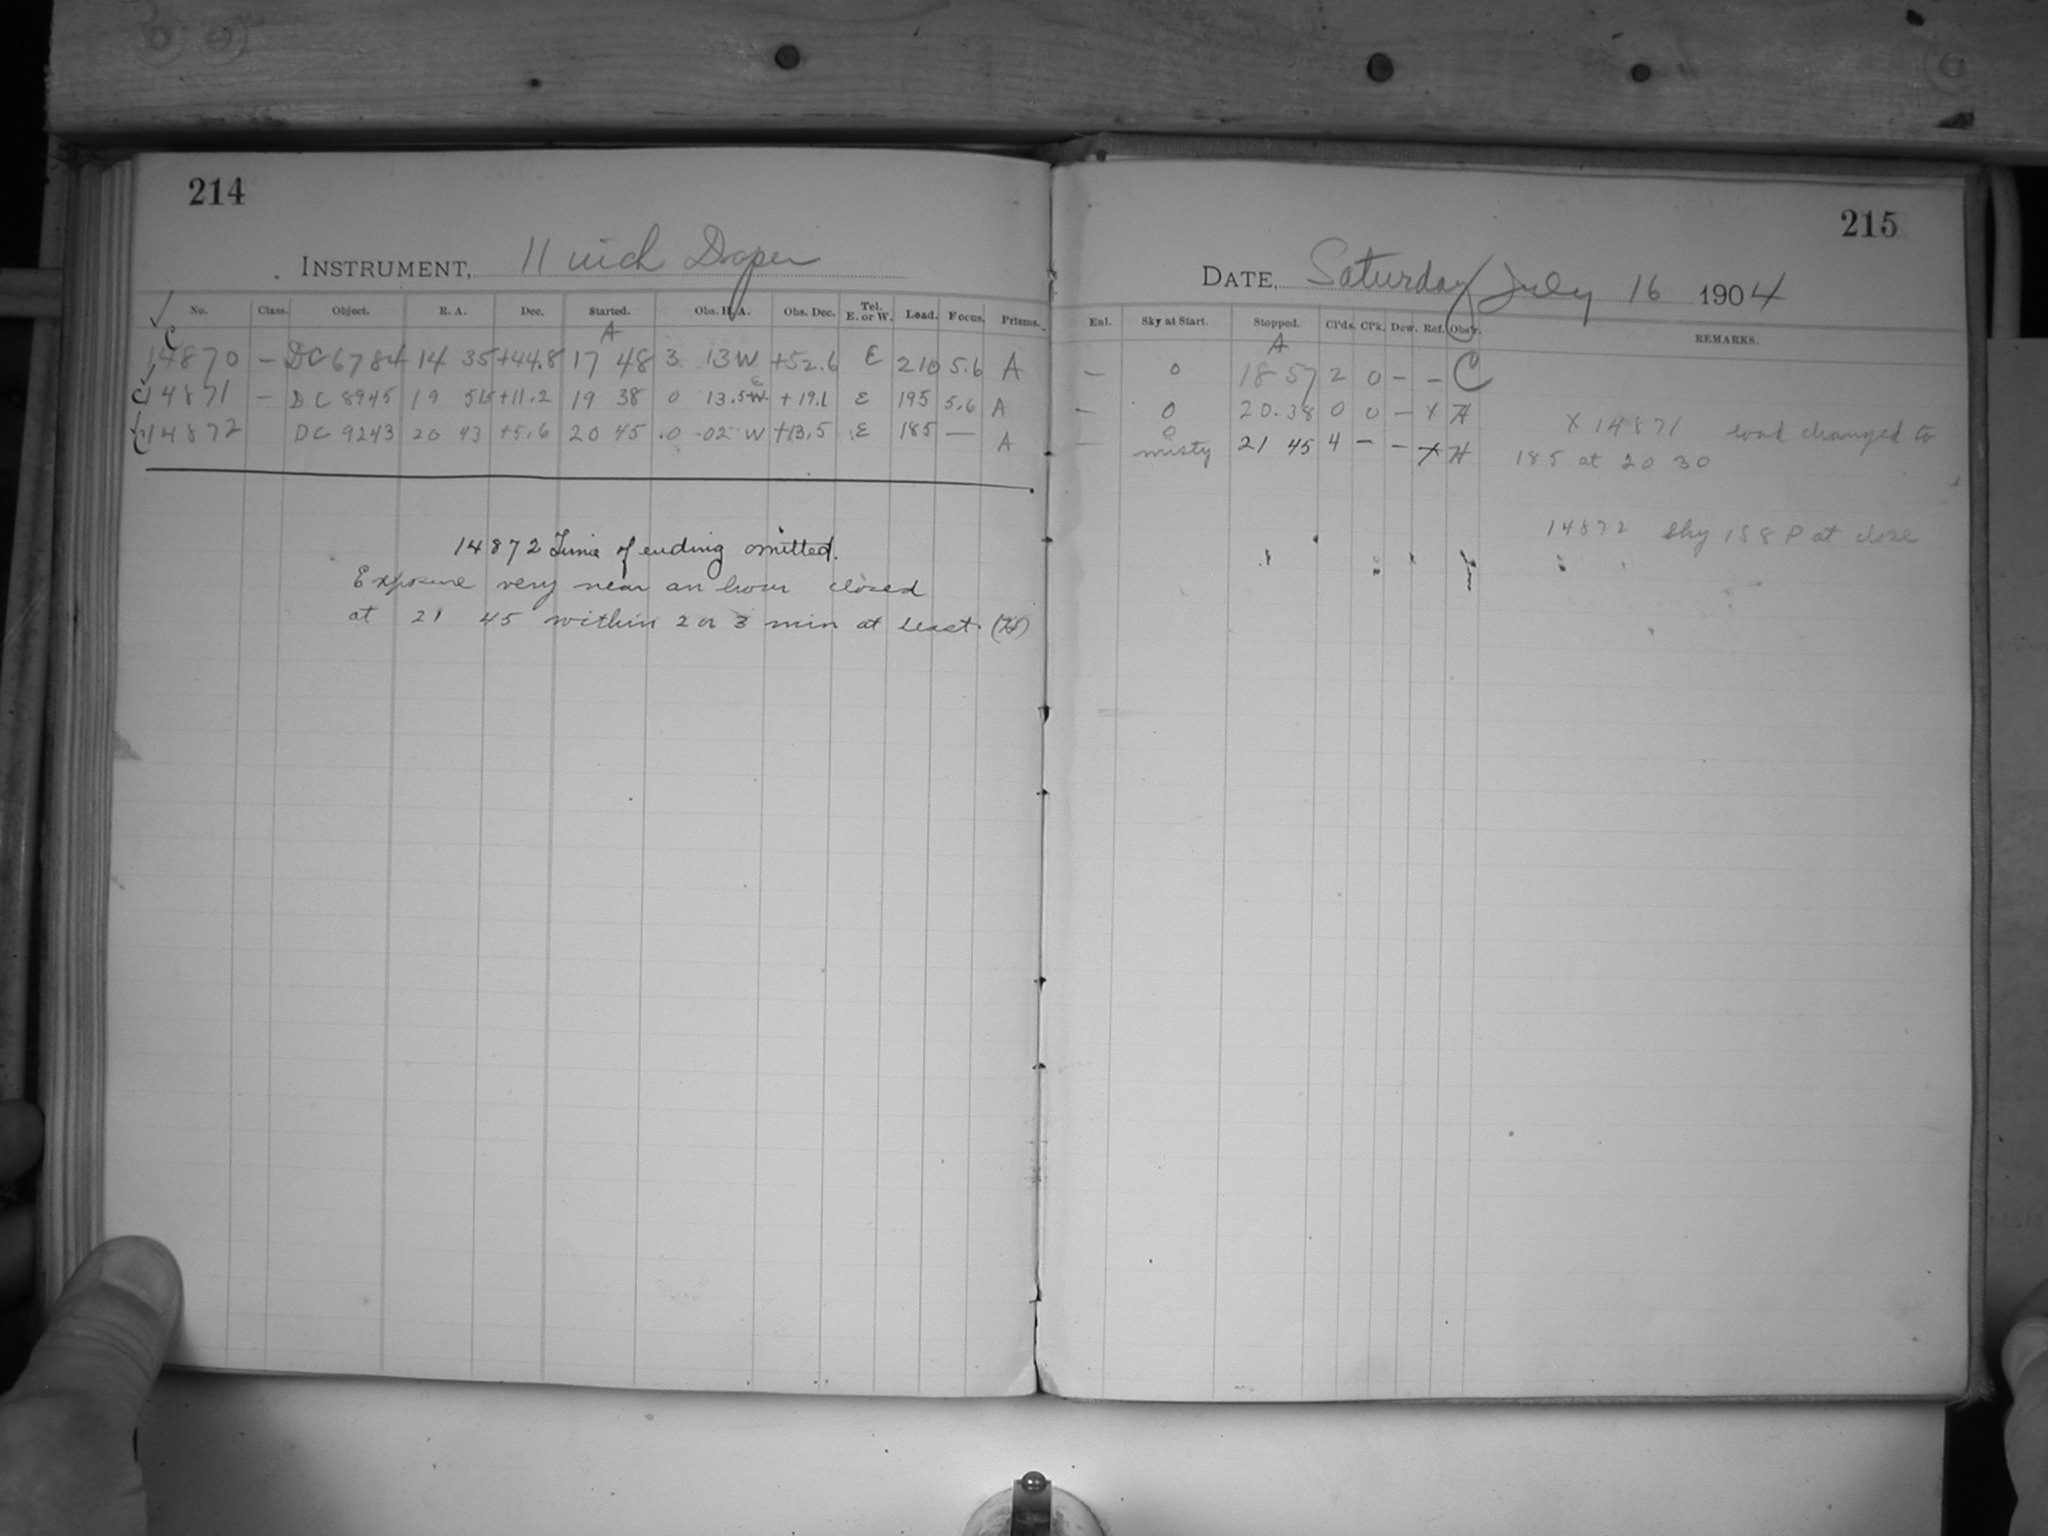 214
INSTRUMENT, 11 inch Draper
No. Class. Object. R. A. Dec. Started. Obs. H. A. Obs. Dec. Tel. E. or W. Load. Focus. Prisms.
A
C
14870 – DC 6784 14 35 +44.8 17 48 3 13 W +52.6 E 210 5.6 A
C 14871 – DC 8945 19 51 +11.2 19 38 0 13.5 W E +19.1 E 195 5.6 A
C 14872 DC 9243 20 43 +5.6 20 45 0 02 W +13.5 E 185 — A
14872 Time of ending omitted.
Exposure very near an hour closed
at 21 45 within 2 or 3 min at least (H)
215
DATE, Saturday July 16 1904
Enl. Sky at Start. Stopped. Cl'ds. Cl'k. Dew. Ref. Obs'r. REMARKS.
A
— 0 18 57 2 0 – – C
— 0 20.38 0 0 – x H x 14871 load changed to
— 0 misty 21 45 4 – – x H 185 at 20 30
14872 Sky 158 P at close